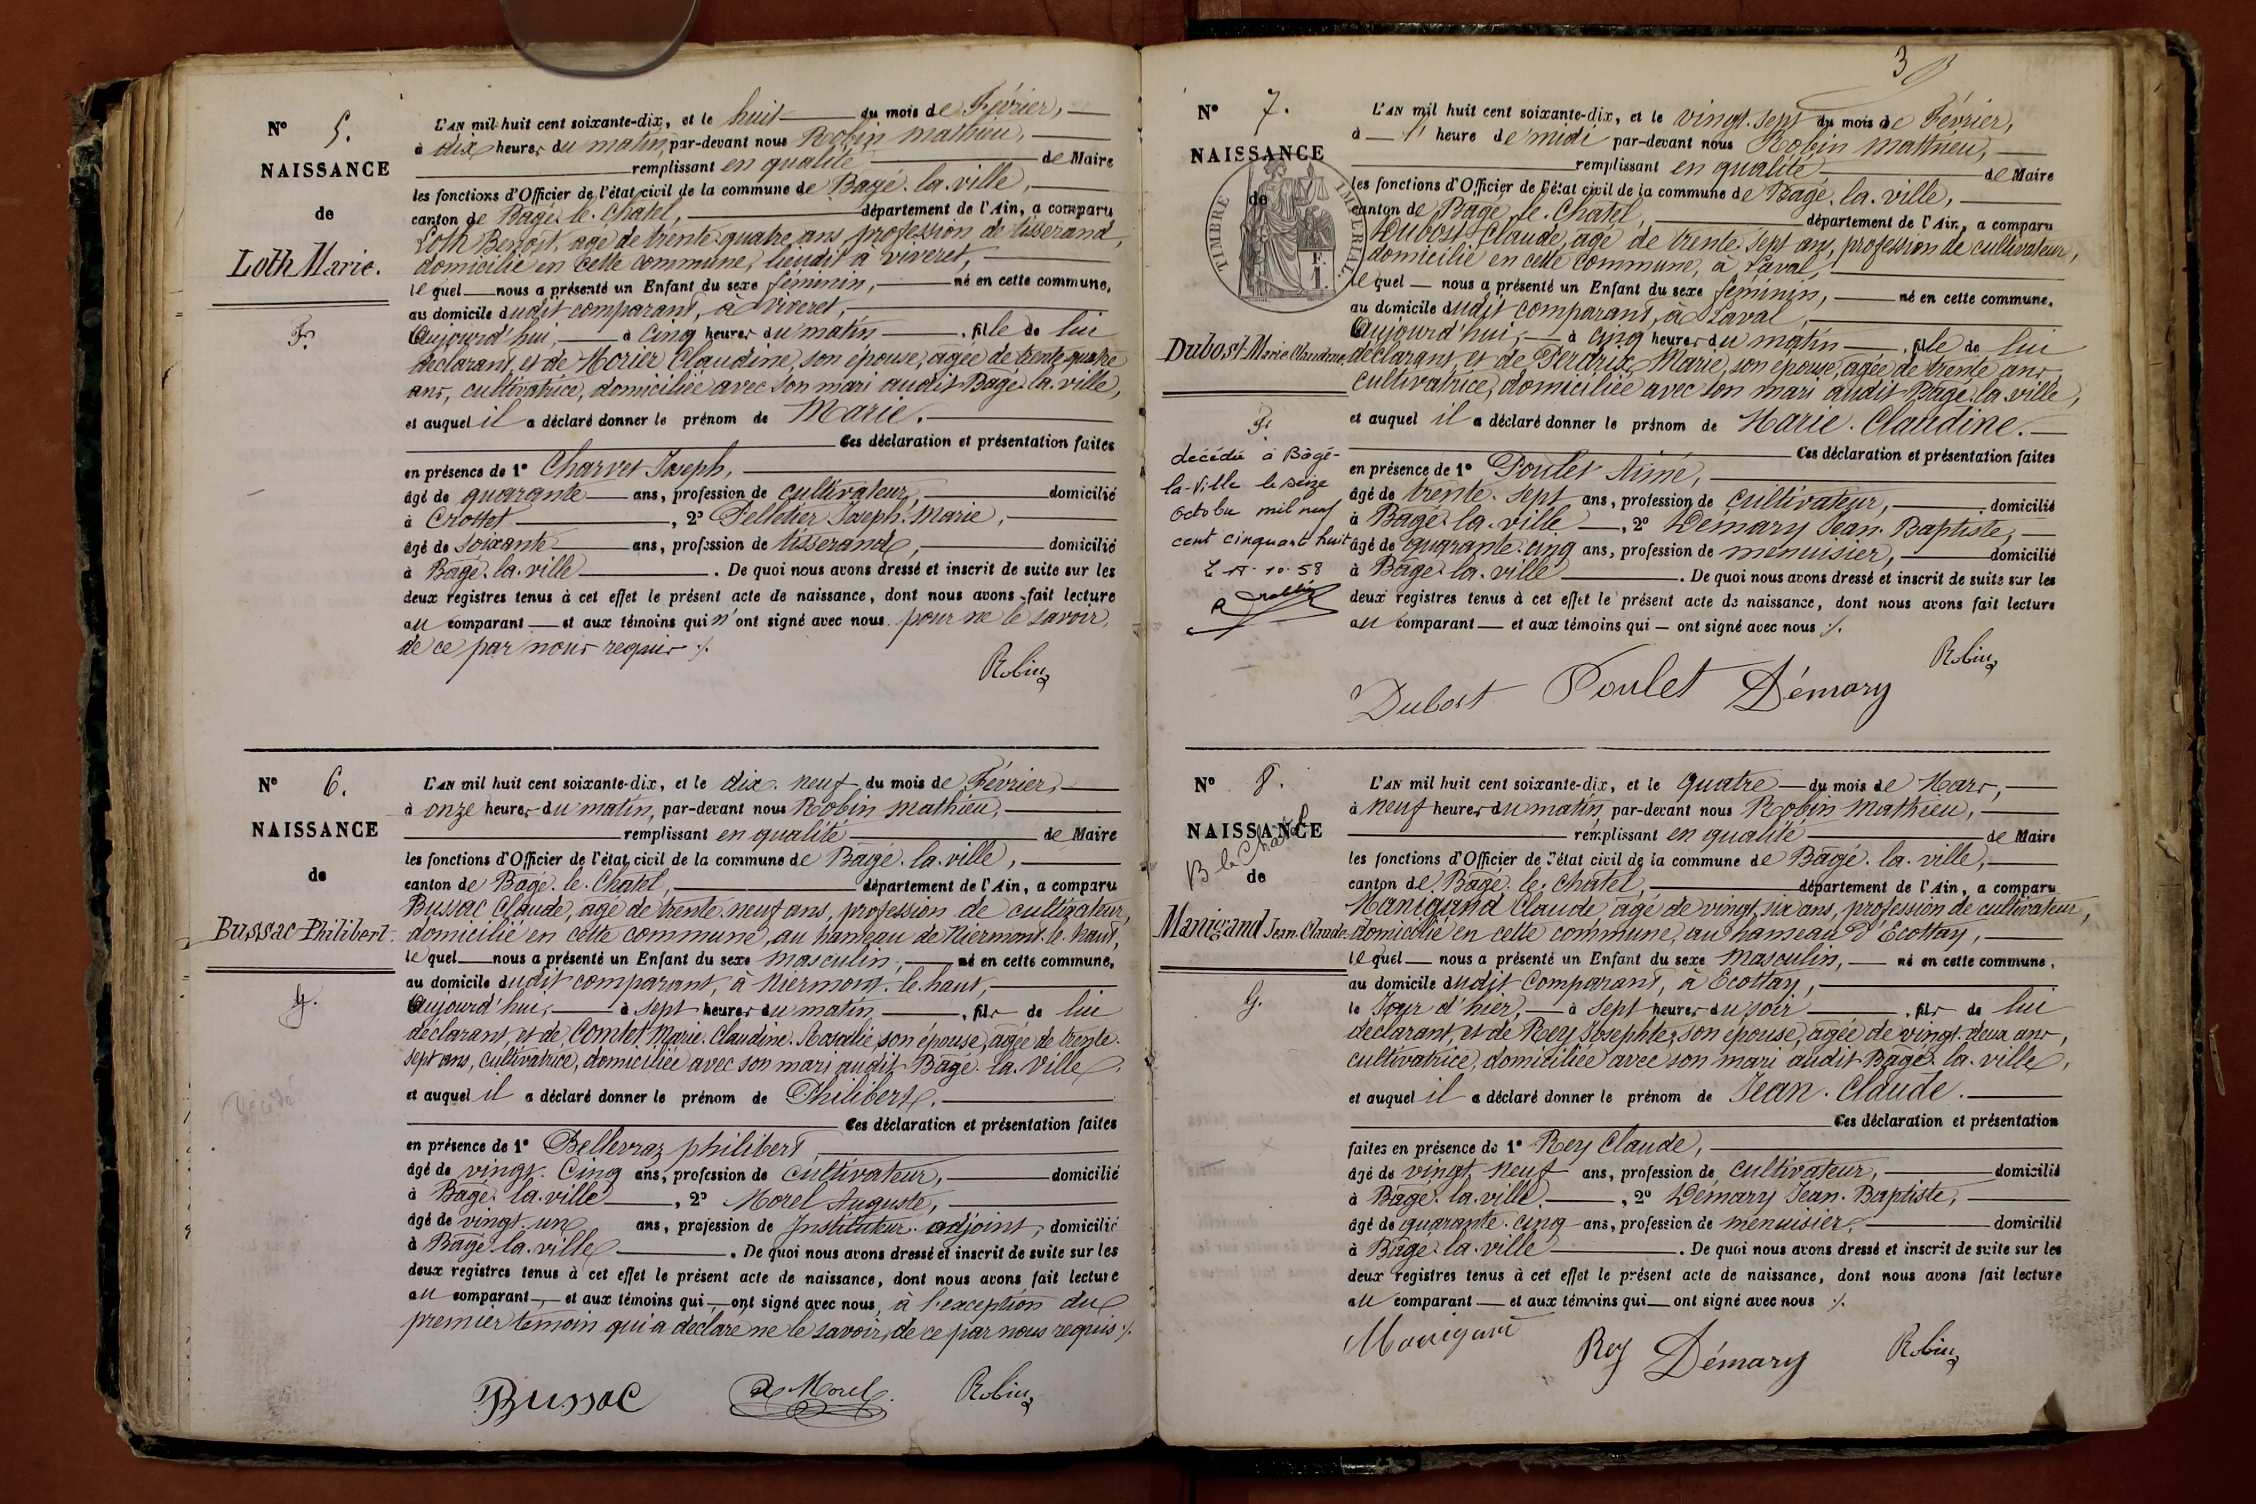 N° 5.
NAISSANCE
de
Loth Marie.
F.
L'AN mil huit cent soixante-dix, et le huit du mois de Février,
à dix heures du matin, par-devant nous Robin Mathieu,
remplissant en qualité de Maire
les fonctions d'Officier de l'état civil de la commune de Bagé-la-ville,
canton de Bagé-le-Chatel, département de l'Ain, a comparu
Loth Benoit, agé de trente-quatre ans, profession de tisserand,
domicilié en cette commune, lieudit à viveret,
lequel nous a présenté un Enfant du sexe féminin, né en cette commune,
au domicile dudit comparant, à Viveret,
Aujourd'hui, à cinq heures du matin, fille de lui
déclarant, et de Morier Claudine, son épouse, agée de trente-quatre
ans, cultivatrice, domiciliée avec son mari audit Bagé-la-ville,
et auquel il a déclaré donner le prénom de Marie.
Ces déclaration et présentation faites
en présence de 1° Charvet Joseph,
âgé de quarante ans, profession de cultivateur, domicilié
à Crottet, 2° Pelletier Joseph-Marie,
âgé de soixante ans, profession de tisserand, domicilié
à Bagé-la-ville. De quoi nous avons dressé et inscrit de suite sur les
deux registres tenus à cet effet le présent acte de naissance, dont nous avons fait lecture
au comparant et aux témoins qui n'ont signé avec nous pour ne le savoir,
de ce par nous requis ./.
Robin
N° 6.
NAISSANCE
de
Bussac Philibert.
g.
Décédé
L'AN mil huit cent soixante-dix, et le dix-neuf du mois de Février,
à onze heures du matin, par-devant nous Robin Mathieu,
remplissant en qualité de Maire
les fonctions d'Officier de l'état civil de la commune de Bagé-la-ville,
canton de Bagé-le-Chatel, département de l'Ain, a comparu
Bussac Claude, agé de trente-neuf ans, profession de cultivateur,
domicilié en cette commune, au hameau de Niermont-le-haut,
lequel nous a présenté un Enfant du sexe masculin, né en cette commune,
au domicile dudit comparant, à Niermont-le-haut,
Aujourd'hui, à sept heures du matin, fils de lui
déclarant, et de Comtet Marie-Claudine-Rosalie, son épouse, agée de trente-
sept ans, cultivatrice, domiciliée avec son mari audit Bagé-la-Ville,
et auquel il a déclaré donner le prénom de Philibert.
Ces déclaration et présentation faites
en présence de 1° Bellevraz philibert,
âgé de vingt-cinq ans, profession de cultivateur, domicilié
à Bagé-la-ville, 2° Morel Auguste,
âgé de vingt-un ans, profession de Instituteur-adjoint, domicilié
à Bagé-la-ville. De quoi nous avons dressé et inscrit de suite sur les
deux registres tenus à cet effet le présent acte de naissance, dont nous avons fait lecture
au comparant et aux témoins qui ont signé avec nous, à l'exception du
premier témoin qui a déclaré ne le savoir, de ce par nous requis ./.
Bussac A Morel. Robin
3
N° 7.
NAISSANCE
de
TIMBRE IMPÉRIAL
Dubost Marie Claudine.
F.
décédée à Bâgé-
la-Ville le seize
Octobre mil neuf
cent cinquante huit
L'AN mil huit cent soixante-dix, et le vingt-sept du mois de Février,
à 1 heure de midi par-devant nous Robin Mathieu,
remplissant en qualité de Maire
les fonctions d'Officier de l'état civil de la commune de Bagé-la-ville,
canton de Bagé-le-Chatel, département de l'Ain, a comparu
Dubost Claude, agé de trente-sept ans, profession de cultivateur,
domicilié en cette commune, à Laval,
lequel nous a présenté un Enfant du sexe féminin, né en cette commune,
au domicile dudit comparant, à Laval,
Aujourd'hui, à cinq heures du matin, fille de lui
déclarant, et de Perdrix Marie, son épouse, agée de trente ans,
cultivatrice, domiciliée avec son mari audit Bagé-la-ville,
et auquel il a déclaré donner le prénom de Marie-Claudine.
Ces déclaration et présentation faites
en présence de 1° Poulet Aimé,
âgé de trente-sept ans, profession de cultivateur, domicilié
à Bagé-la-ville, 2° Démary Jean-Baptiste,
âgé de quarante-cinq ans, profession de menuisier, domicilié
à Bagé-la-ville. De quoi nous avons dressé et inscrit de suite sur les
deux registres tenus à cet effet le présent acte de naissance, dont nous avons fait lecture
au comparant et aux témoins qui ont signé avec nous ./.
Robin
Dubost Poulet Démary
N° 8.
NAISSANCE
B le Chatel
de
Manigand Jean-Claude
g.
L'AN mil huit cent soixante-dix, et le quatre du mois de Mars,
à neuf heures du matin, par-devant nous Robin Mathieu,
remplissant en qualité de Maire
les fonctions d'Officier de l'état civil de la commune de Bagé-la-ville,
canton de Bagé-le-Chatel, département de l'Ain, a comparu
Manigand Claude, agé de vingt-six ans, profession de cultivateur,
domicilié en cette commune, au hameau d'Ecottay,
lequel nous a présenté un Enfant du sexe Masculin, né en cette commune,
au domicile dudit Comparant, à Ecottay,
le Jour d'hier, à sept heures du soir, fils de lui
déclarant, et de Rey Josephte, son épouse, agée de vingt-deux ans,
cultivatrice, domiciliée avec son mari audit Bagé-la-ville,
et auquel il a déclaré donner le prénom de Jean-Claude.
Ces déclaration et présentation
faites en présence de 1° Rey Claude,
âgé de vingt-neuf ans, profession de cultivateur, domicilié
à Bagé-la-ville, 2° Démary Jean-Baptiste,
âgé de quarante-cinq ans, profession de menuisier, domicilié
à Bagé-la-ville. De quoi nous avons dressé et inscrit de suite sur les
deux registres tenus à cet effet le présent acte de naissance, dont nous avons fait lecture
au comparant et aux témoins qui ont signé avec nous ./.
Manigand Rey Démary Robin